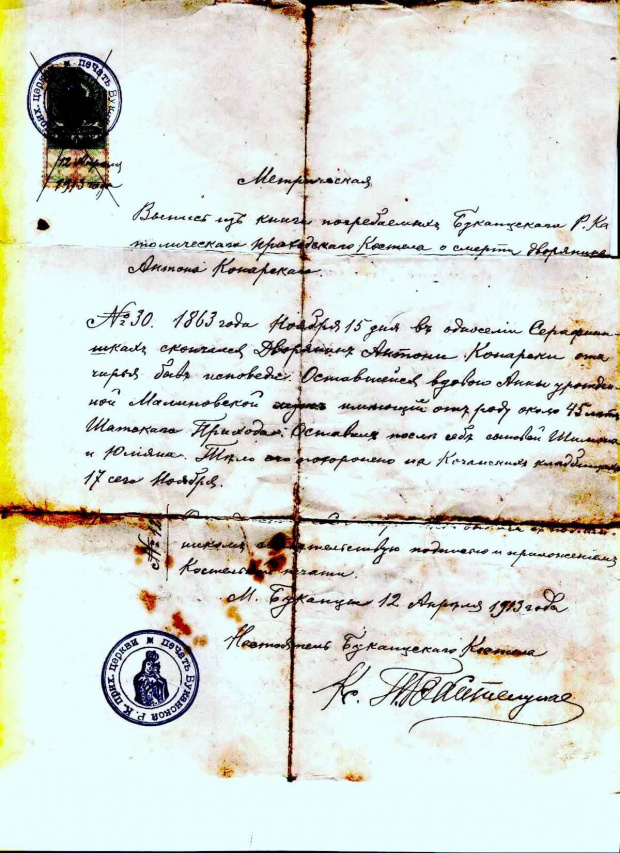 печать Бук
прих. церкви и
12 Апреля
1913 года
Метрическая
Выпись изъ книги погребаемыхъ Буканцскаго Р. Ка
толическаго приходскаго Костела о смерти дворянина
Антона Конарскаго.
№ 30. 1863 года Ноября 15 дня въ околосели
шкахъ скончался Дворянинъ Антони Конарски отъ
чирья бывъ исповеде. Оставшейся вдовою Анны урожден
ной Малиновской имеющий отъ роду около 45 летъ
Шатскаго Прихода. Оставил после себе сыновей Шимона
и Юлияна. Тело его похоронено на кладбищахъ
17 сего Ноября.
№
подписью и приложениемъ
Костельной печати.
М. Буканцы 12 Апреля 1913 года
Настоятель Буканцскаго Костела
Кс.
печать Буканской Р. К. прих. церкви